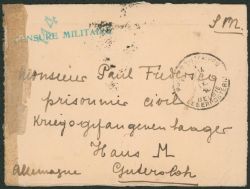 S.M.
CENSURE MILITAIRE
Monsieur Paul
prisonnier civil
Kriegsgefangenenlager
Haus M
Allemagne Gütersloh